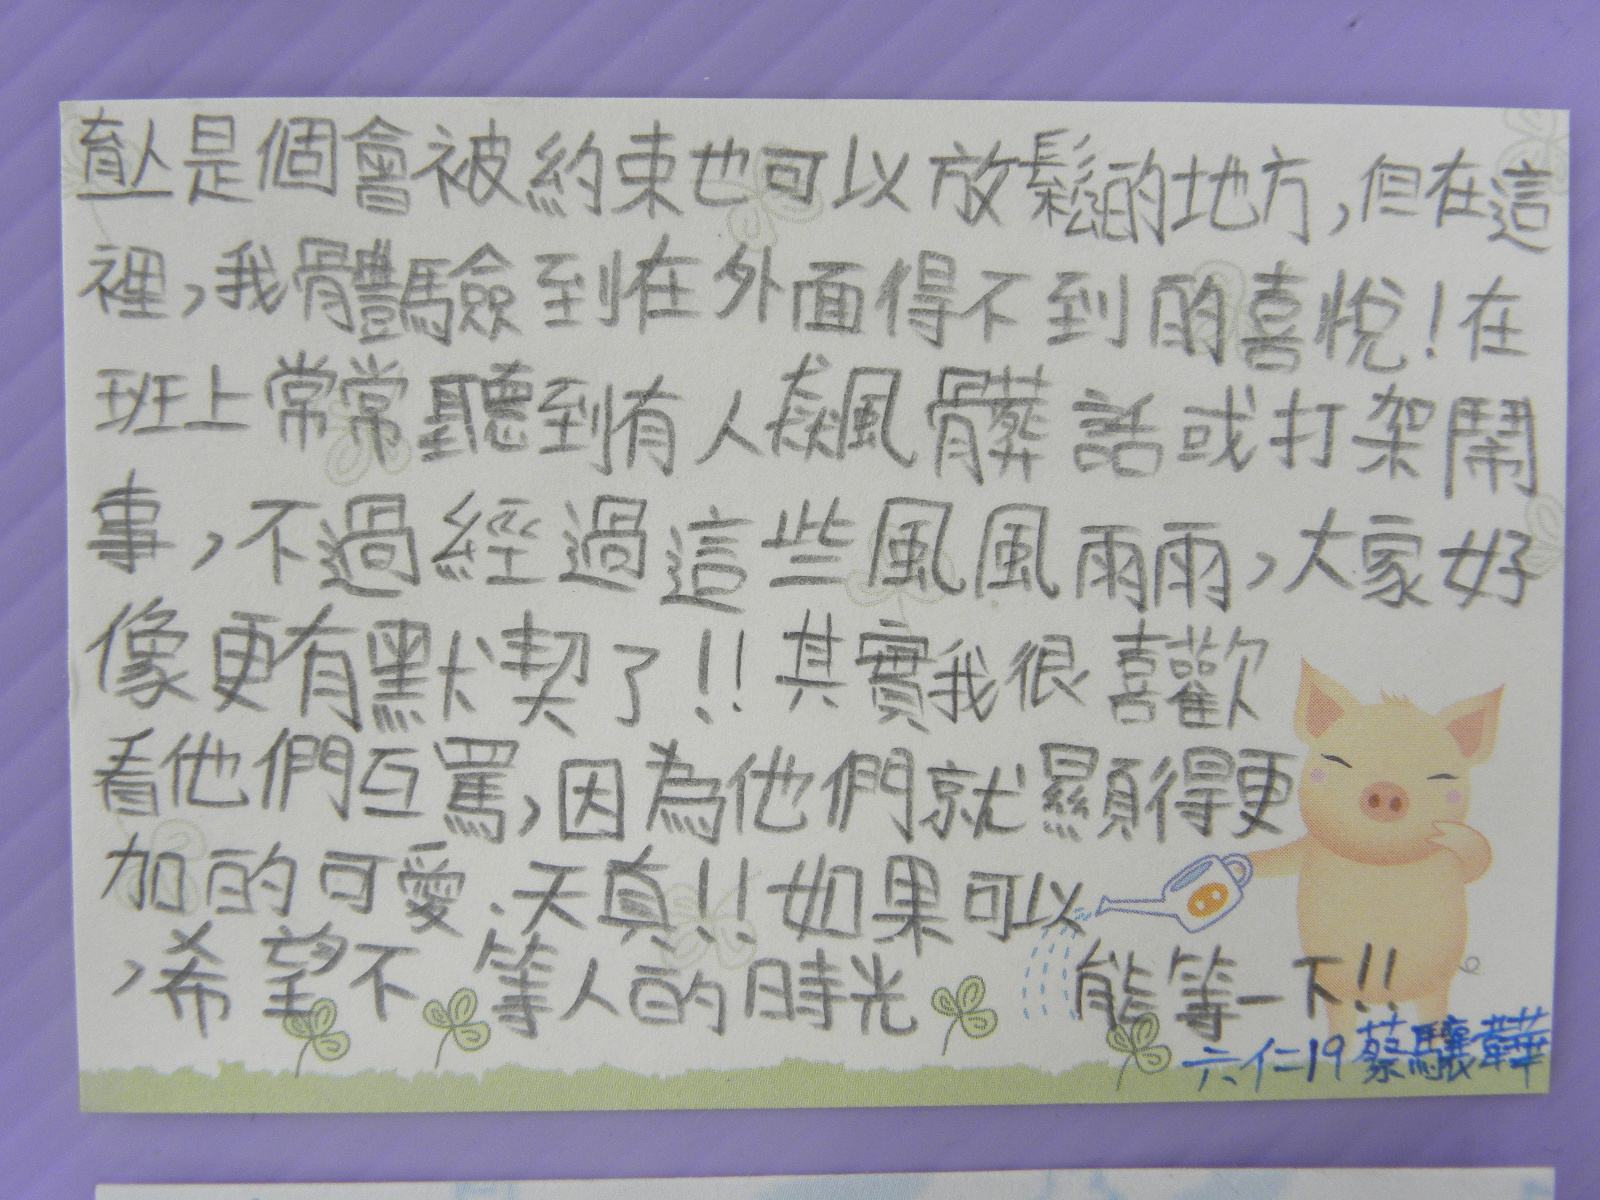 育仁是個會被約束也可以放鬆的地方,但在這
裡,我體驗到在外面得不到的喜悅!在
班上常常聽到有人飆髒話或打架鬧
事,不過經過這些風風雨雨,大家好
像更有默契了!!其實我很喜歡
看他們互罵,因為他們就顯得更
加的可愛.天真!!如果可以
,希望不等人的時光 能等一下!!
六仁19蔡驤韡